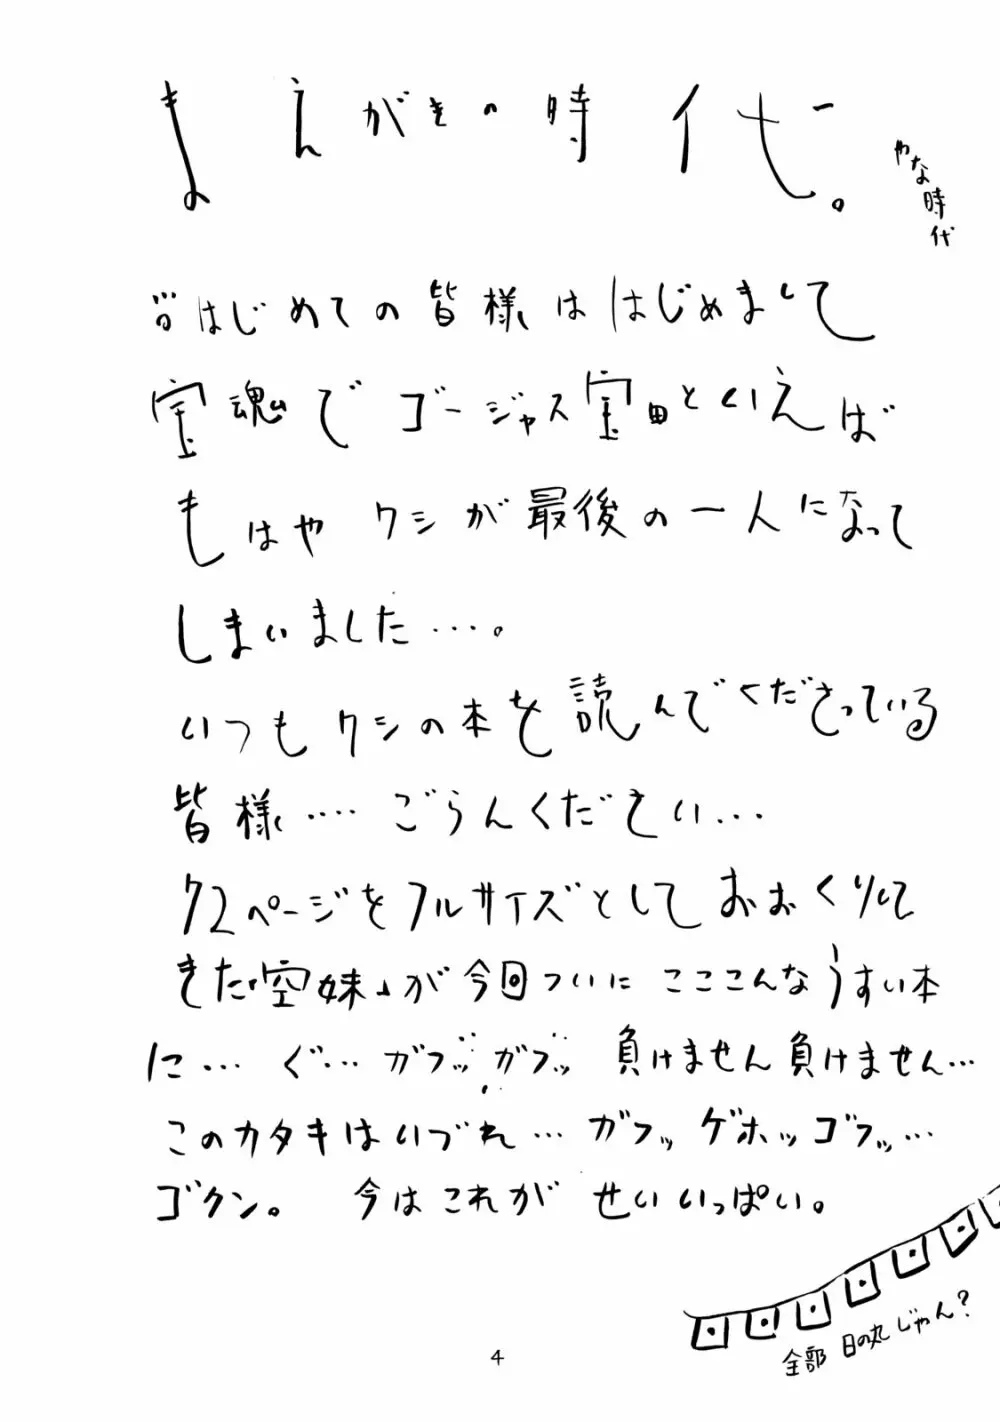 まえがきの時代。
やな時代
はじめての皆様ははじめまして
宝魂でゴージャス宝田といえば
もはやワシが最後の一人になって
しまいました…。
いつもワシの本を読んでくださっている
皆様…ごらんください…
72ページをフルサイズとしておおくりして
きた「空妹」が今回ついにこここんなうすい本
に…ぐ…ガフッガフッ 負けません負けません…
このカタキはいづれ…ガフッゲホッゴフッ…
ゴクン。 今はこれがせいいっぱい。
全部日の丸じゃん?
4